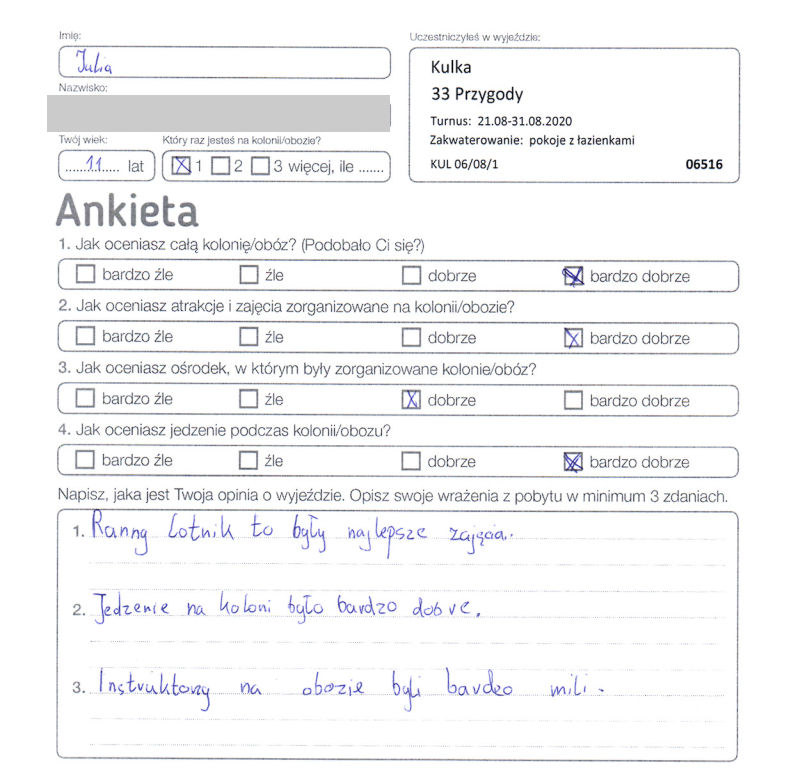 Imię:
Julia
Nazwisko:
Twój wiek:
11 lat
Który raz jesteś na kolonii/obozie?
1 2 3 więcej, ile .......
Uczestniczyłeś w wyjeździe:
Kulka
33 Przygody
Turnus: 21.08-31.08.2020
Zakwaterowanie: pokoje z łazienkami
KUL 06/08/1 06516
Ankieta
1. Jak oceniasz całą kolonię/obóz? (Podobało Ci się?)
bardzo źle źle dobrze bardzo dobrze
2. Jak oceniasz atrakcje i zajęcia zorganizowane na kolonii/obozie?
bardzo źle źle dobrze bardzo dobrze
3. Jak oceniasz ośrodek, w którym były zorganizowane kolonie/obóz?
bardzo źle źle dobrze bardzo dobrze
4. Jak oceniasz jedzenie podczas kolonii/obozu?
bardzo źle źle dobrze bardzo dobrze
Napisz, jaka jest Twoja opinia o wyjeździe. Opisz swoje wrażenia z pobytu w minimum 3 zdaniach.
1. Ranny Lotnik to były najlepsze zajęcia.
2. Jedzenie na koloni było bardzo dobre.
3. Instruktorzy na obozie byli bardzo mili.